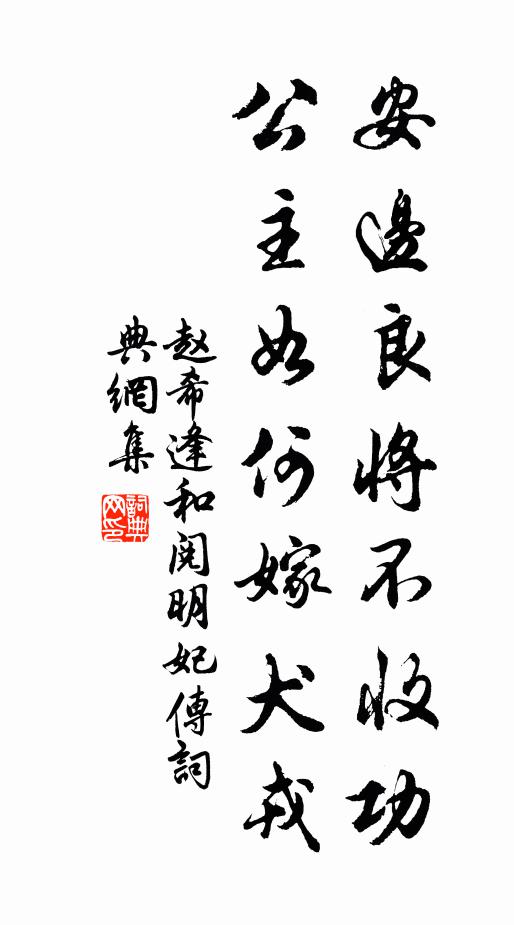 安邊良將不收功
公主如何嫁犬戎
赵希逢和阅明妃傳詞
典網集
詞典網印